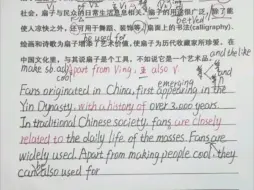 社会，扇子与民众的日常生活息息相关。扇子的用途很广泛，除了能
使人凉快之外，还可用于舞蹈、装饰等。扇面上的书法(calligraphy)、
be used for
绘画和诗歌为扇子增添了艺术价值，使扇子为历代收藏家所珍爱。在
and the like
中国文化里，与其说扇子是个工具，不如说它是一个艺术品。
make sb. adj. Apart from Ving, 主 also V.
and
emerging
Fans originated in China, first appearing in the
Yin Dynasty, with a history of over 3,000 years.
In traditional Chinese society, fans are closely
related to the daily life of the masses. Fans are
widely used. Apart from making people cool, they
can also used for
be